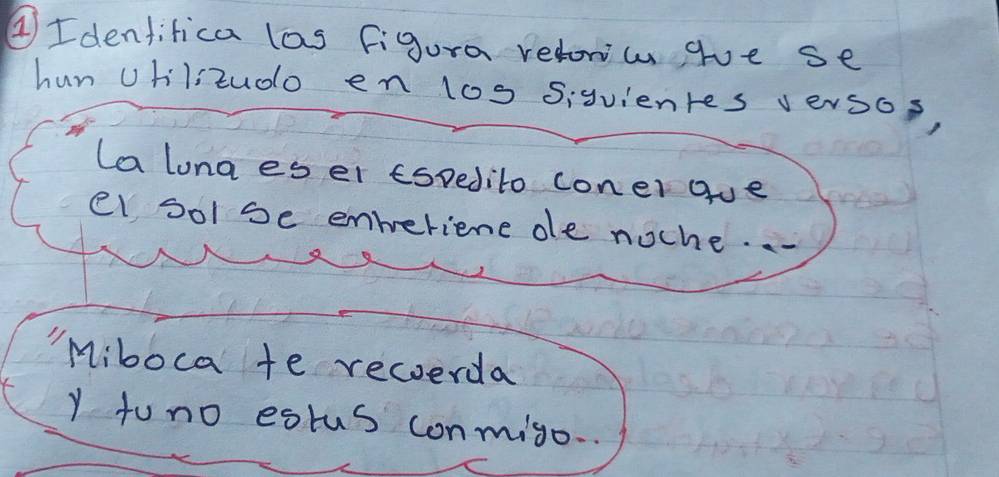 ① Identifica las figura retorica que se
han utilizado en los siguientes versos,
"La luna es el Espejito con el que
el sol se entretiene de noche...
"Mi boca te recuerda
y tu no estas conmigo..